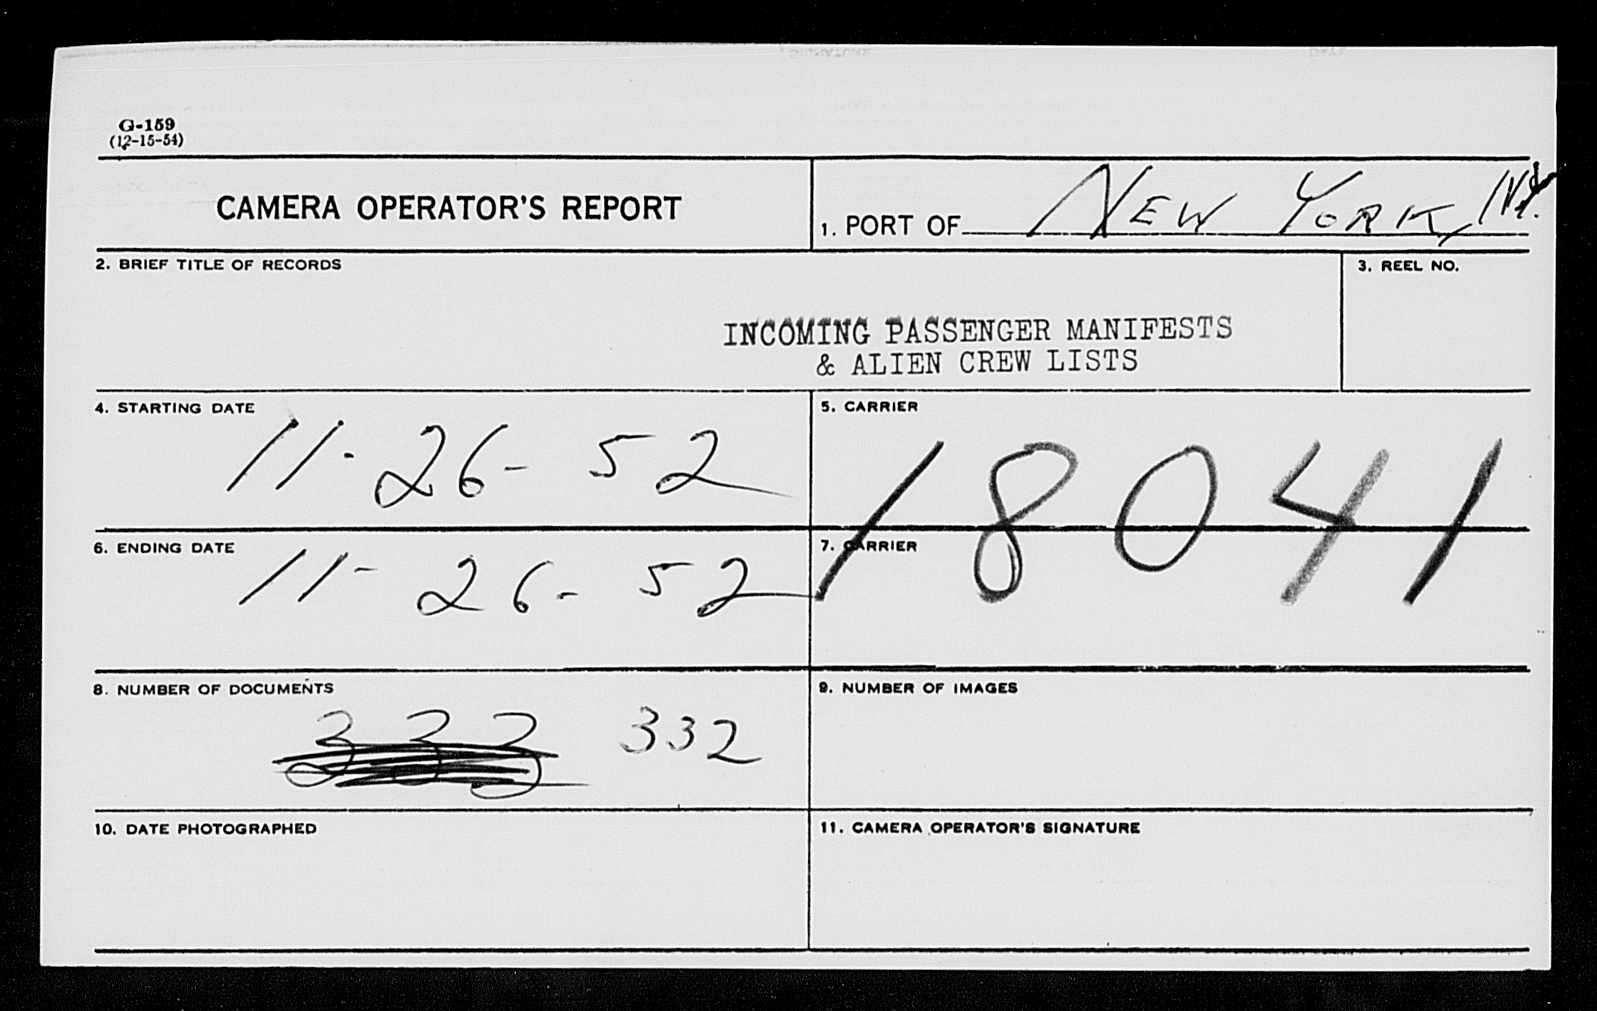 G-159
(12-15-54)
CAMERA OPERATOR'S REPORT
1. PORT OF NEW YORK, N.Y.
2. BRIEF TITLE OF RECORDS
3. REEL NO.
INCOMING PASSENGER MANIFESTS
& ALIEN CREW LISTS
4. STARTING DATE
11-26-52
5. CARRIER
18041
6. ENDING DATE
11-26-52
7. CARRIER
8. NUMBER OF DOCUMENTS
333 332
9. NUMBER OF IMAGES
10. DATE PHOTOGRAPHED
11. CAMERA OPERATOR'S SIGNATURE